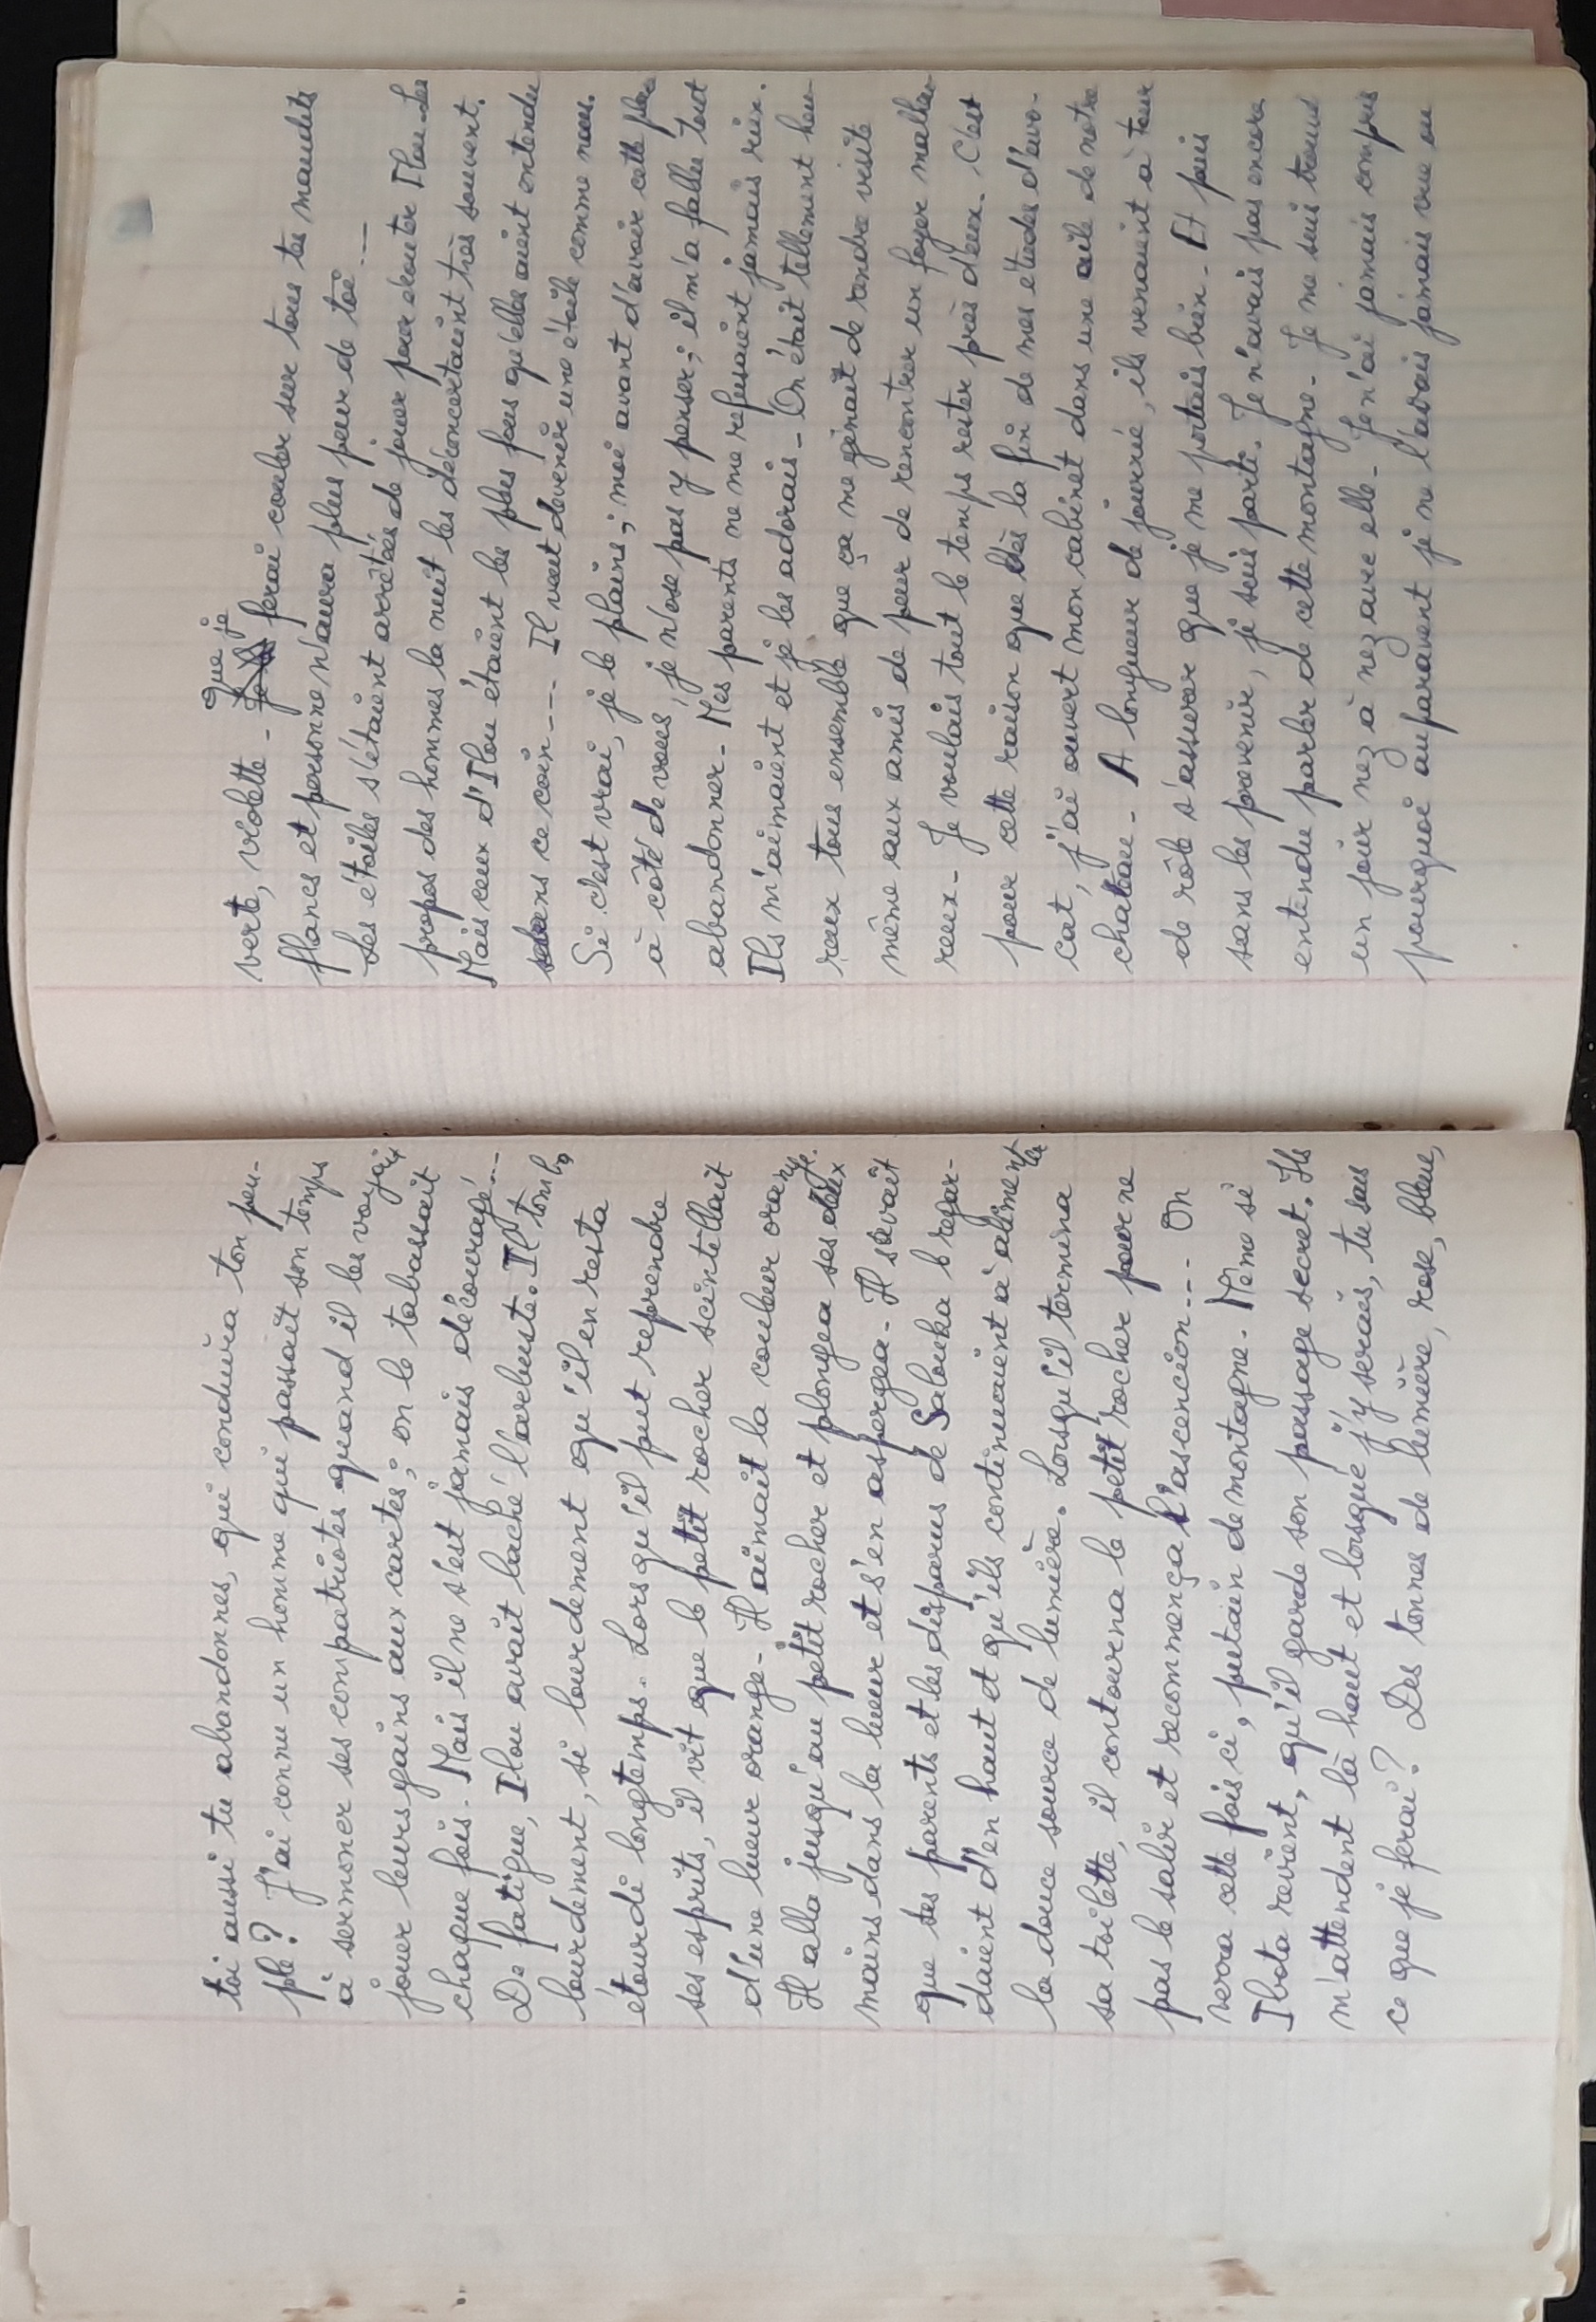 toi aussi tu abandonnes, qui conduira ton peu-
ple? J'ai connu un homme qui passait son temps
à sermoner ses compatriotes quand il les voyait
jouer leurs gains aux cartes; on le tabassait
chaque fois. Mais il ne s'est jamais découragé...
De fatigue, Ilou avait laché l'arbuste. Il tomba
lourdement, si lourdement qu'il en resta
étourdi longtemps. Lorsqu'il put reprendre
ses esprits, il vit que le petit rocher scintillait
d'une lueur orange. Il aimait la couleur orange.
Il alla jusqu'au petit rocher et plongea ses deux
mains dans la lueur et s'en aspergea. Il savait
que ses parents et les disparus de Salouka le regar-
daient d'en haut et qu'ils continuaient à alimenter
la douce source de lumière. Lorsqu'il termina
sa toilette, il contourna le petit rocher pour ne
pas le salir et recommença l'ascencion... On
verra cette fois ci, putain de montagne. Même si
Ibota revient, qu'il garde son passage secret. Ils
m'attendent là haut et lorsque j'y serais, tu sais
ce que je ferai? Des tonnes de lumière, rose, bleue,
verte, violette - que je ferai couler sur tous tes maudits
flancs et personne n'aura plus peur de toi...
Les étoiles s'étaient arrêtées de jouer pour écouter Ilou. Les
propos des hommes la nuit les déconcertaient très souvent.
Mais ceux d'Ilou étaient les plus fous qu'elles aient entendu
dans ce coin... Il veut devenir une étoile comme nous.
Si c'est vrai, je le plains; moi avant d'avoir cette place
à côté de vous, je n'ose pas y penser; il m'a fallu tout
abandonner. Mes parents ne me refusaient jamais rien.
Ils m'aimaient et je les adorais. On était tellement heu-
reux tous ensemble que ça me gênait de rendre visite
même aux amis de peur de rencontrer un foyer malheu
reux. Je voulais tout le temps rester près d'eux. C'est
pour cette raison que dès la fin de mes études d'avo-
cat, j'ai ouvert mon cabinet dans une aile de notre
chateau. A longueur de journée, ils venaient à tour
de rôle s'assurer que je me portais bien. Et puis
sans les prévenir, je suis parti. Je n'avais pas encore
entendu parler de cette montagne. Je me suis trouvé
un jour nez à nez avec elle. Je n'ai jamais compris
pourquoi auparavant je ne l'avais jamais vue ou